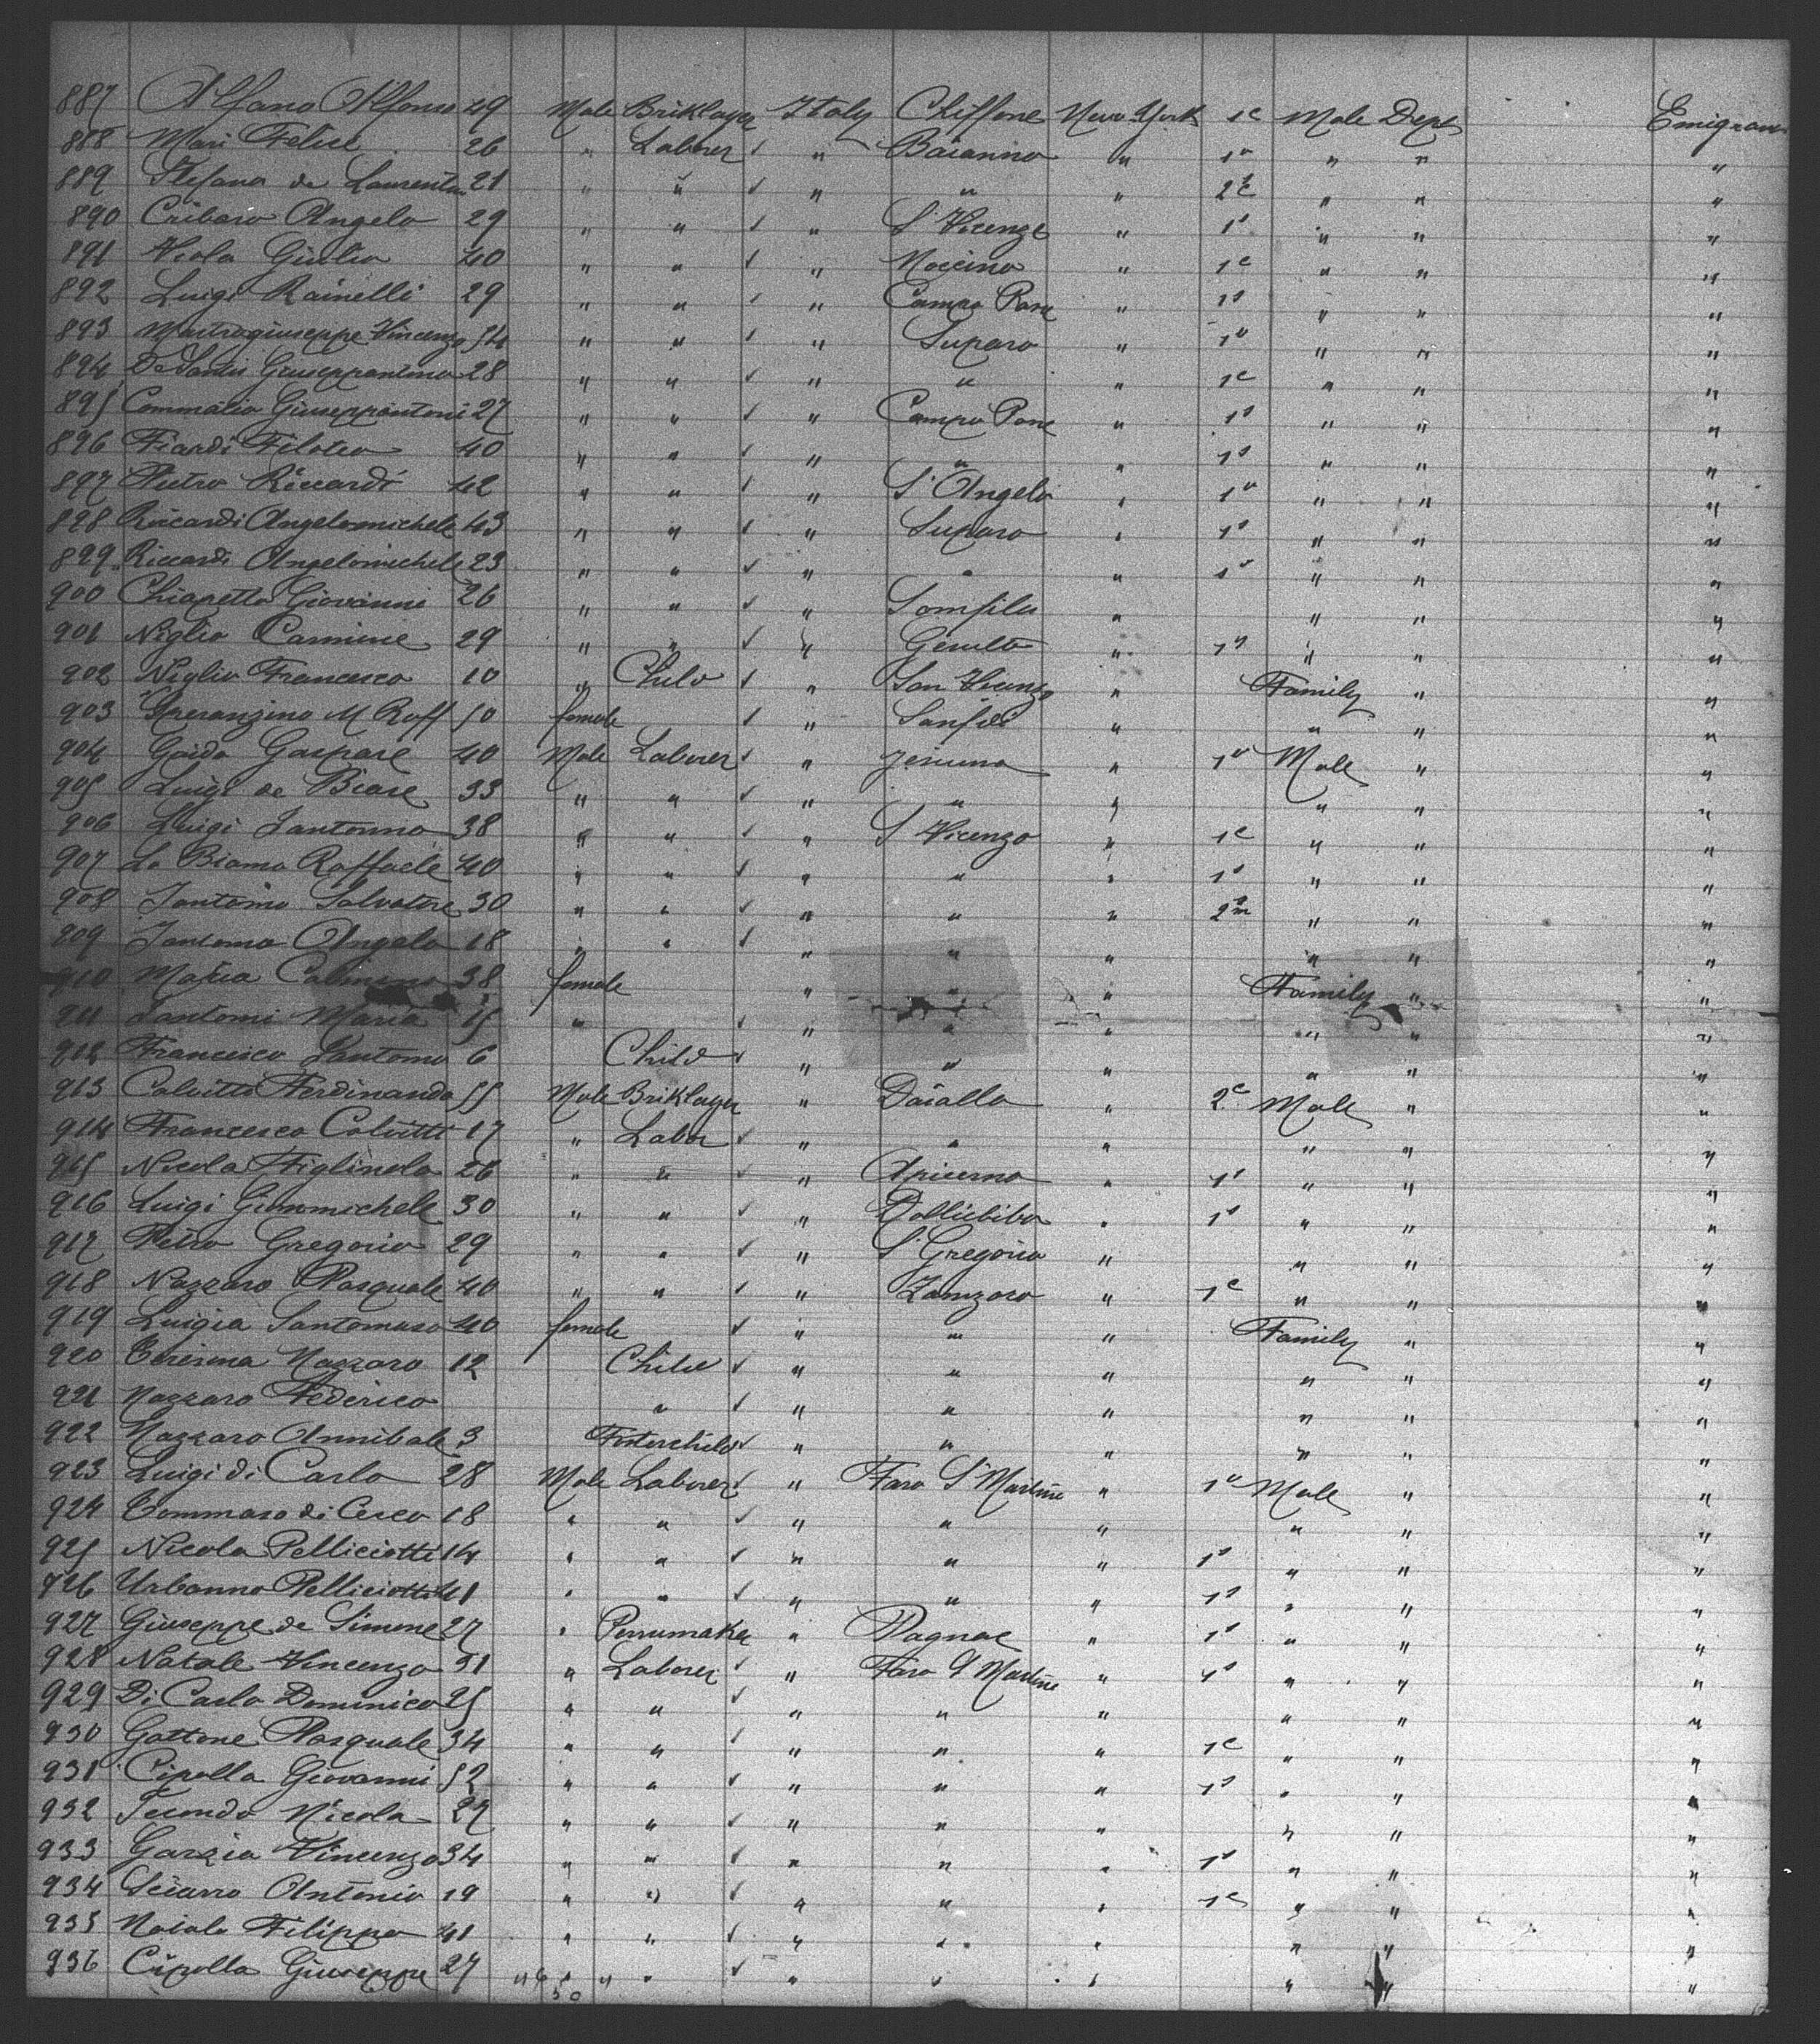 887 Alfano Alfonso 49 Male Briklayer Italy Chiffone New York 1c Male Dept Emigran
888 Mari Felice 26 " Laborer " Baianno " 1" " " "
889 Stefano de Laurentn 21 " " " " " 2c " " "
890 Cribaro Angelo 29 " " " S. Vicenze " 1s " " "
891 Nicola Giulio 40 " " " " 1c " " "
892 Luigi Rainelli 29 " " " Campo Pone " 1s " " "
893 Mastrogiuseppe Vincenzo 54 " " " Suparo " 1" " " "
894 De Santis Giuseppantonio 28 " " " " " 1c " " "
895 Giuseppantoni 27 " " " Campo Pone " 1s " " "
896 Ficardi Filoteo 40 " " " " " 1s " " "
897 Pietro Riccardi 42 " " " S. Angelo " 1" " " "
898 Riccardi Angelomichele 43 " " " Suparo " 1s " " "
899 Riccardi Angelomichele 23 " " " " " 1" " " "
900 Chiapetta Giovanni 26 " " " " " " "
901 Niglio Carmine 29 " " " " 1s " " "
902 Niglio Francesco 10 " Child " San Vicenzo " Family " "
903 Speranzino M Raff 50 female " Sanfili " " " "
904 Gaido Gaspare 40 Male Laborer " " 1" Male " "
905 Luigi de Biase 33 " " " " " " " "
906 Luigi Iantonno 38 " " " S Vicenzo " 1c " " "
907 Lo Biamo Raffaele 40 " " " " " 1s " " "
908 Iantomo Salvatore 30 " " " " " 2 " " "
909 Iantomo Angelo 18 " " " " " " " "
910 Maria 38 female " " " Family " "
911 Iantomi Maria 15 " " " " " " "
912 Francesco Iantomo 6 Child " " " " " "
913 Calvitti Ferdinando 55 Male Briklayer " Daialla " 2c Male " "
914 Francesco Calvitti 17 " Labor " " " " " "
915 Nicola Figlinola 26 " " " Apicerno " 1s " " "
916 Luigi Giammichele 30 " " " " 1s " " "
917 Petro Gregorio 29 " " " S. Gregorio " " " "
918 Nazzaro Pasquale 40 " " " Zamzoro " 1c " " "
919 Luigia Santomaso 40 female " " " Family " "
920 Teresina Nazzaro 12 Child " " " " " "
921 Nazzaro Federico " " " " " " "
922 Nazzaro Annibale 3 Fosterchild " " " " " "
923 Luigi di Carlo 28 Male Laborer " Fara S. Martine " 1" Male " "
924 Tommaso di Cesco 18 " " " " " " " "
925 Nicola Pelliciotti 14 " " " " " 1s " " "
926 Urbanno Pelliciotti 41 " " " " " 1s " " "
927 Giuseppe de Simone 27 " Perrumaker " Pagnac " 1s " " "
928 Natale Vincenzo 31 " Laborer " Fara S Martine " 1s " " "
929 Di Carlo Dominico 25 " " " " " " " "
930 Gattone Pasquale 34 " " " " " 1c " " "
931 Cipolla Giovanni 52 " " " " " 1s " " "
932 Secondo Nicola 27 " " " " " " " "
933 Garzia Vincenzo 34 " " " " " 1s " " "
934 Sciarro Antonio 19 " " " " " 1c " " "
935 Natale Filippo 41 " " " " " " " "
936 Cipolla Giuseppe 27 " " " " " " " "